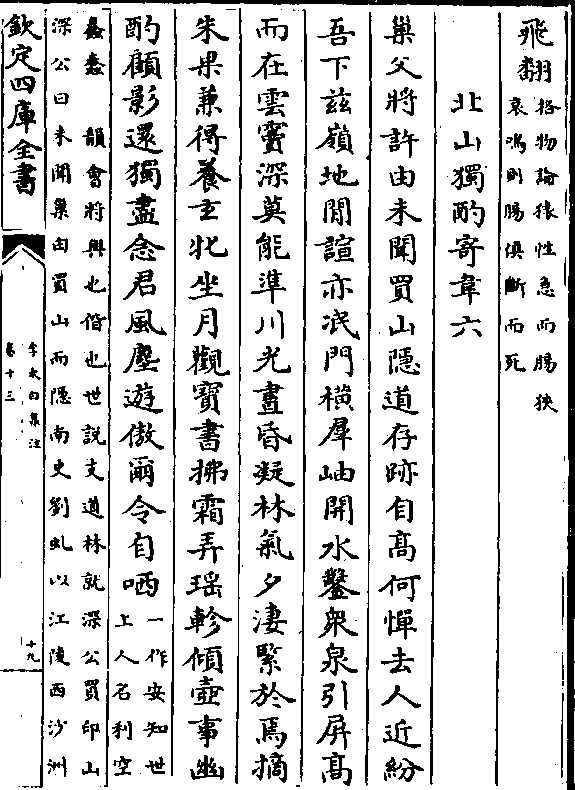 飛翻
格物論猿性急而腸狹
哀鳴則腸俱斷而死
北山獨酌寄韋六
巢父將許由未聞買山隱道存跡自髙何憚去人近紛
吾下兹嶺地閒諠亦泯門横羣岫開水鑿衆泉引屏髙
而在雲竇深莫能準川光晝昏凝林氣夕淒緊於焉摘
朱果兼得養玄牝坐月觀寶書拂霜弄瑶軫傾壺事幽
酌顧影還獨盡念君風塵遊傲爾令自哂
一作安知世
上人名利空
蠢蠢 韻會將與也偕也世説支道林就深公買印山
深公曰未聞巢由買山而隱南史劉虬以江陵西沙洲
欽定四庫全書
李太白集注
卷十三
十九